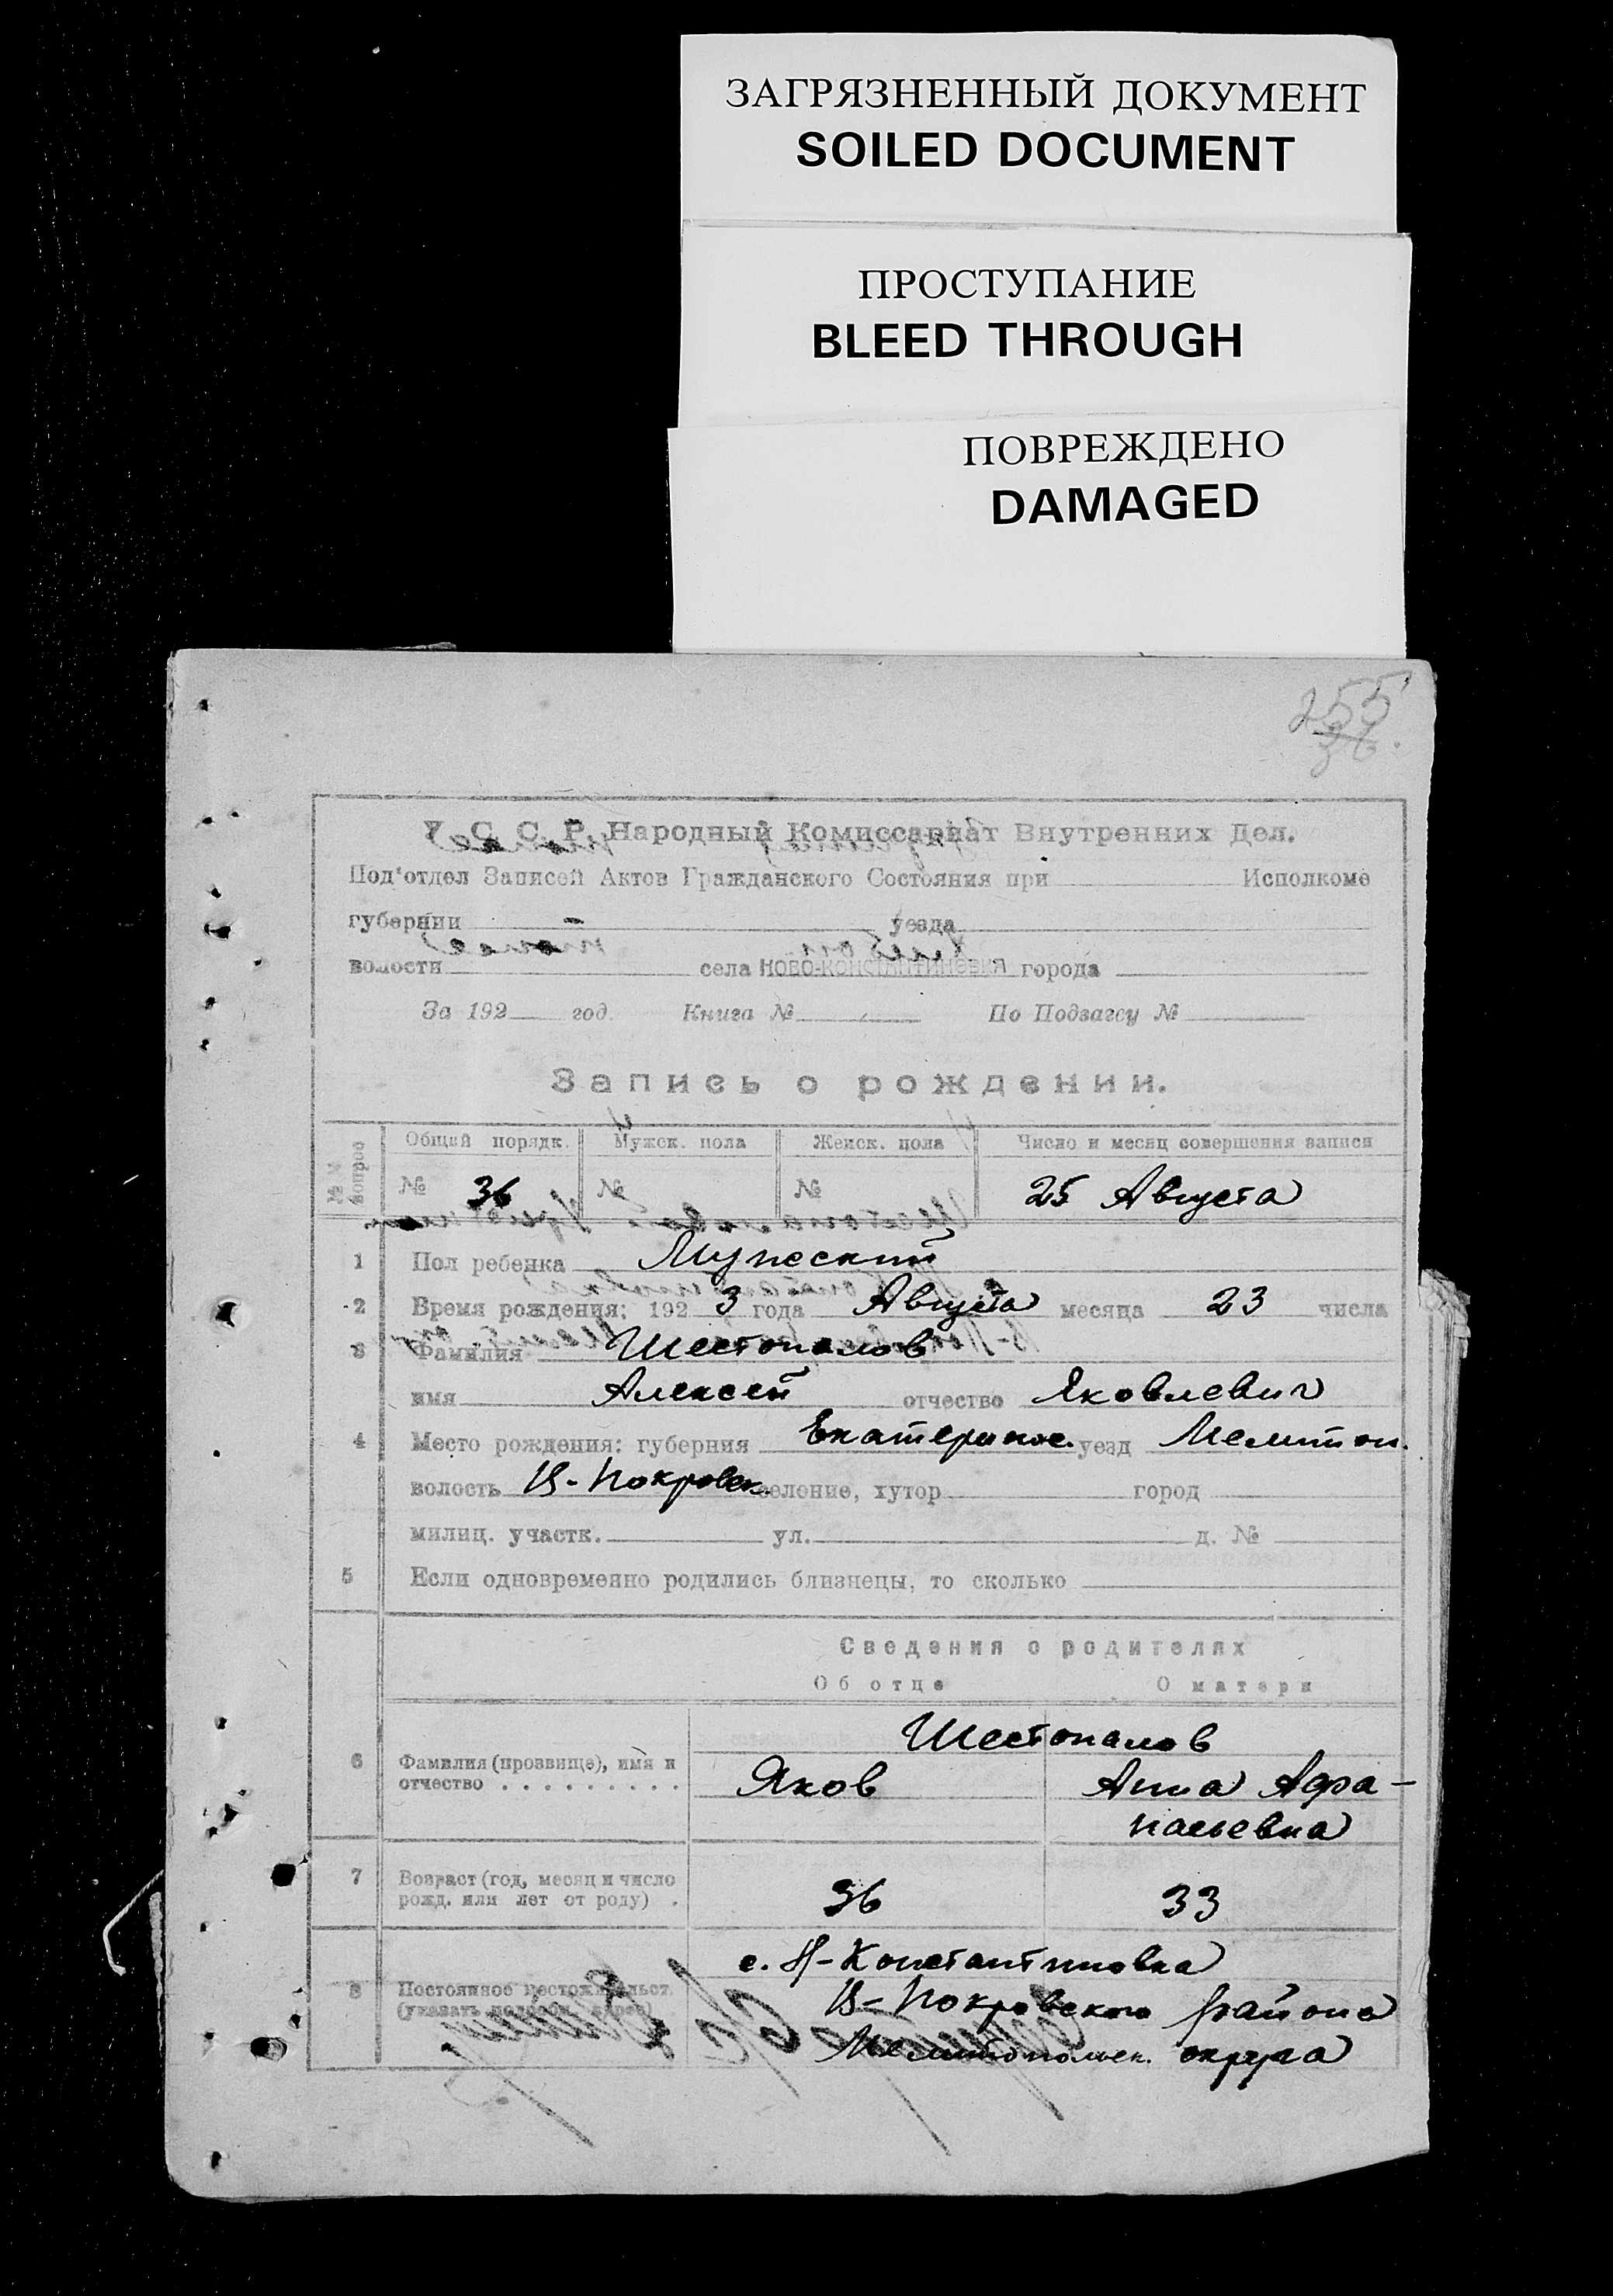 ЗАГРЯЗНЕННЫЙ ДОКУМЕНТ
SOILED DOCUMENT
ПРОСТУПАНИЕ
BLEED THROUGH
ПОВРЕЖДЕНО
DAMAGED
255
36.
У. С. С. Р. Народный Комиссариат Внутренних Дел.
Под'отдел Записей Актов Гражданского Состояния при Исполкоме
губернии уезда
волости села НОВО-КОНСТАНТИНОВКА города
За 192 год. Книга № По Подзагсу №
Запись о рождении.
№№ вопрос Общий порядк. Мужск. пола Женск. пола Число и месяц совершения записи
№ 36 № № 25 Августа
1 Пол ребенка Мужеский
2 Время рождения: 192 3 года Августа месяца 23 числа
3 Фамилия Шестопалов
имя Алексей отчество Яковлевич
4 Место рождения: губерния Екатеринос. уезд Мелитоп.
волость В-Покровск. селение, хутор город
милиц. участк. ул. д. №
5 Если одновременно родились близнецы, то сколько
Сведения о родителях
Об отце О матери
Шестопалов
6 Фамилия (прозвище), имя и
отчество . . . . . . . . . Яков Анна Афа-
насьевна
7 Возраст (год, месяц и число
рожд. или лет от роду) . 36 33
с. Н-Константиновка
8 Постоянное местожительст.
(указать подробн. адрес) В-Покровского района
Мелитопольск. округа